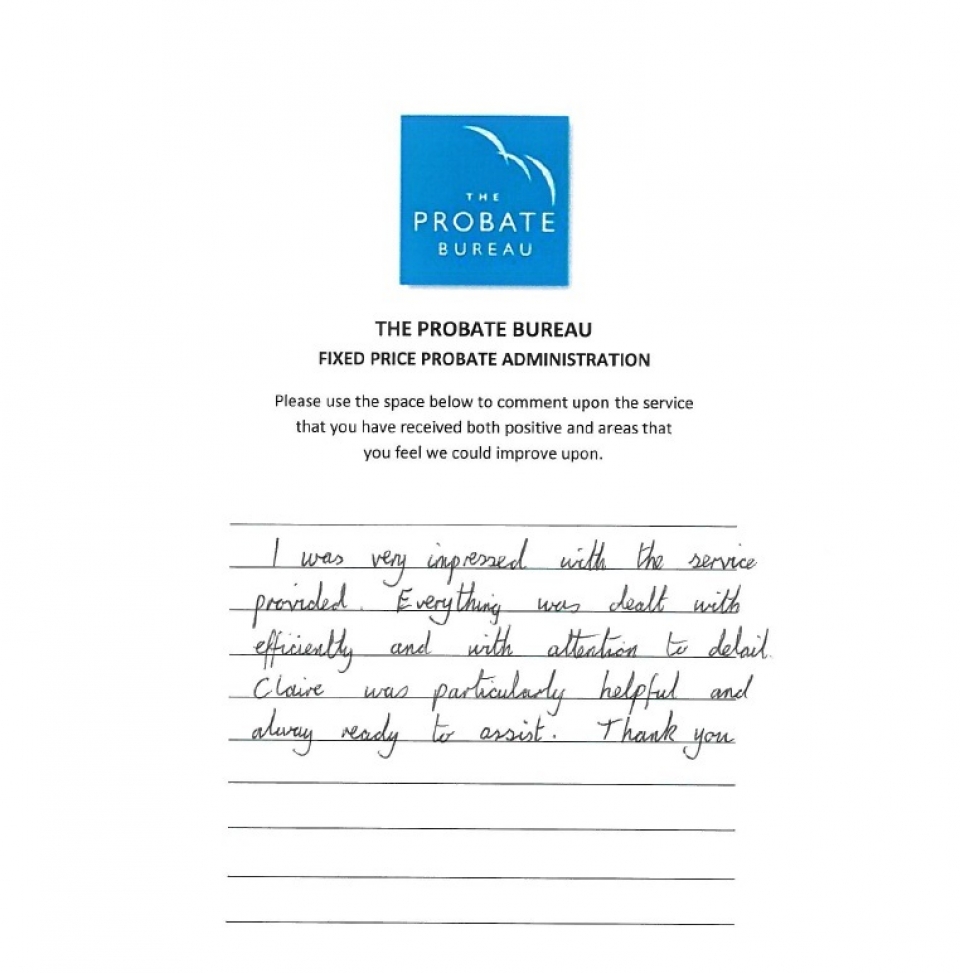 THE
PROBATE
BUREAU
THE PROBATE BUREAU
FIXED PRICE PROBATE ADMINISTRATION
Please use the space below to comment upon the service
that you have received both positive and areas that
you feel we could improve upon.
I was very impressed with the service
provided. Everything was dealt with
efficiently and with attention to detail.
Claire was particularly helpful and
alway ready to assist. Thank you